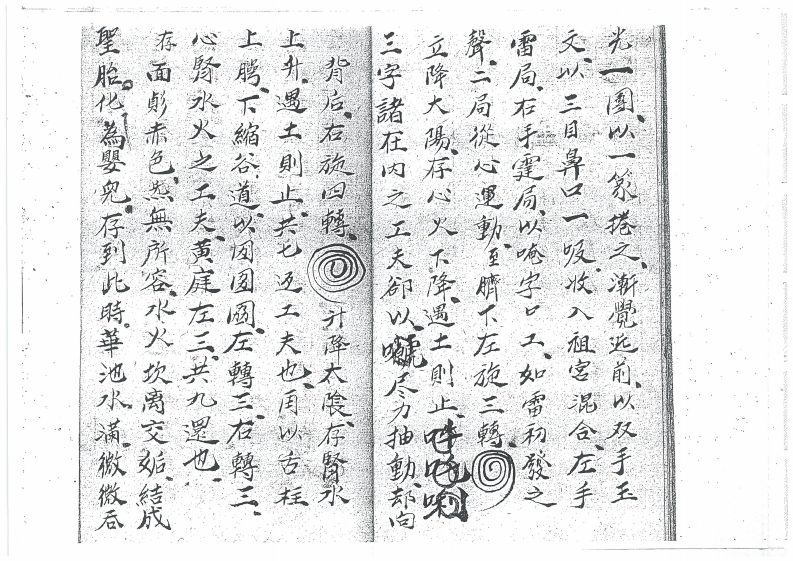 光一團、以一篆捲之、漸覺近前、以双手玉
文、以三目鼻口一吸、收入祖宮混合、左手
雷局、右手霆局、以唵字口工、如雷初發之
聲、二局從心運動、至臍下左旋三轉、
立降大陽、存心火下降、遇土則止、吽吒唎
三字諸在内之工夫卻以 尽力抽動、却向
背后、右旋四轉、升降太陰、存腎水
上升、遇土則止、共七返工夫也、再以舌柱
上腭、下縮谷道、以囡囶圀、左轉三、右轉三、
心腎水火之工夫、黃庭左三、共九還也、
存面 赤色、炁無所容、水火坎离交姤、結成
聖胎、化為嬰兒、存到此時、華池水滿、微微吞